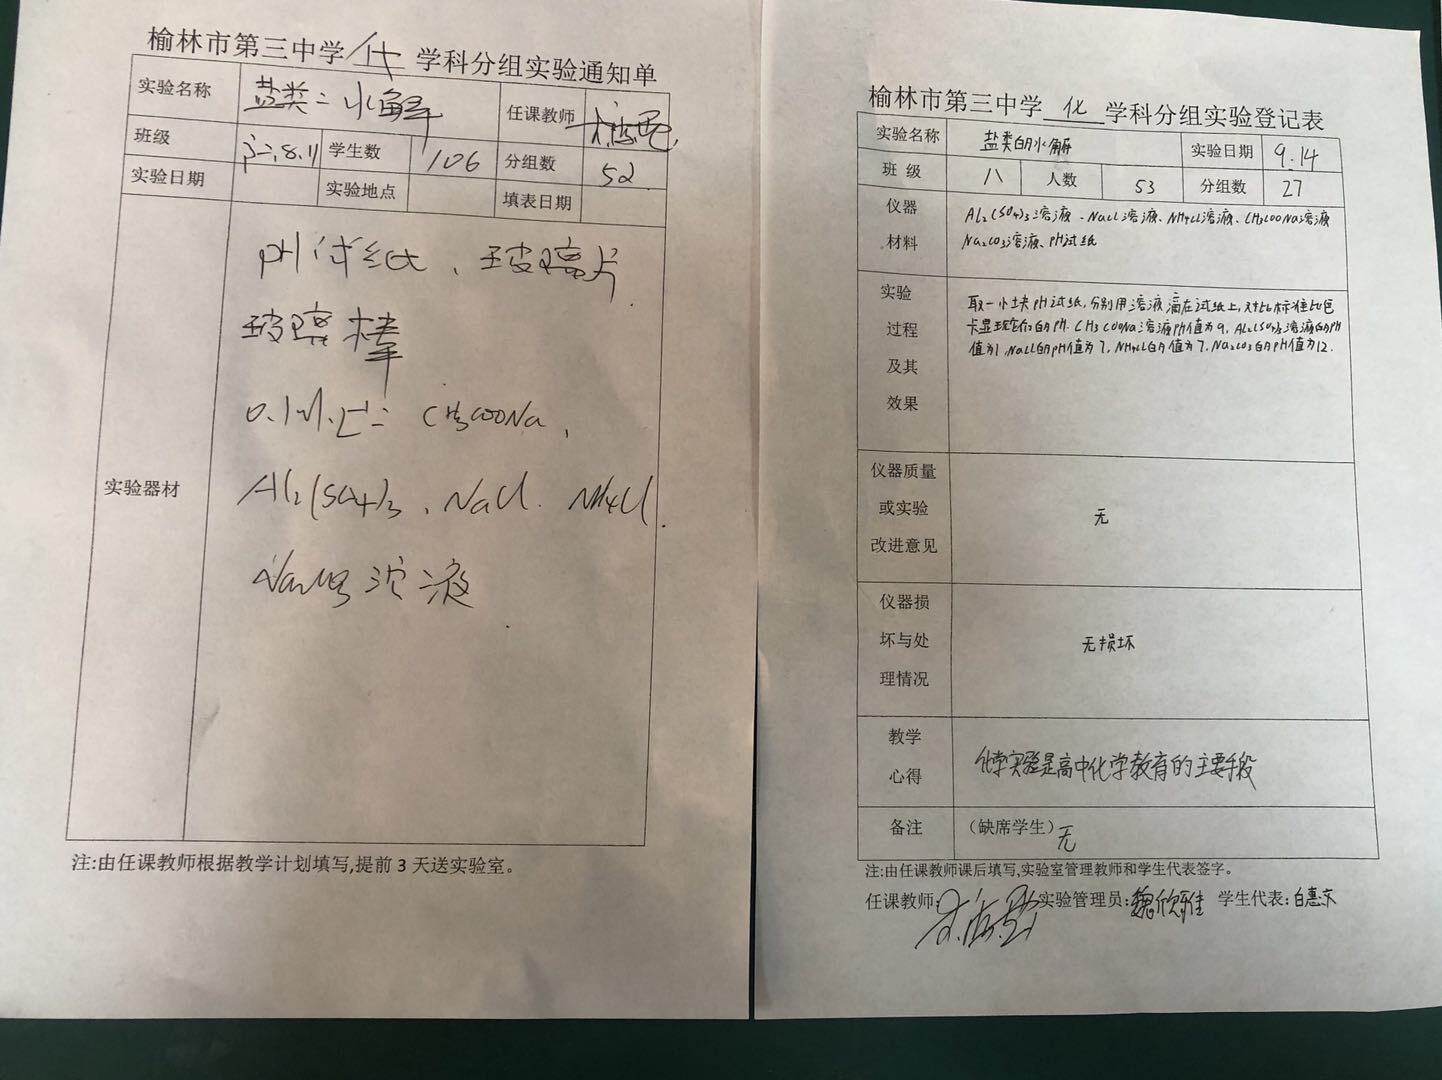 榆林市第三中学 化 学科分组实验通知单
实验名称 盐类的水解 任课教师
班级 学生数 106 分组数 52
实验日期 实验地点 填表日期
实验器材
pH试纸、玻璃片
玻璃棒
CH3COONa、
Al2(SO4)3、NaCl、NH4Cl、
溶液
注:由任课教师根据教学计划填写,提前3天送实验室。
榆林市第三中学 化 学科分组实验登记表
实验名称 盐类的水解 实验日期 9.14
班 级 八 人数 53 分组数 27
仪器材料
Al2(SO4)3溶液、NaCl溶液、NH4Cl溶液、CH3COONa溶液
Na2CO3溶液、PH试纸
实验过程及其效果
取一小块PH试纸,分别用溶液滴在试纸上,对比标准比色
卡 的PH. CH3COONa溶液PH值为9, Al2(SO4)3溶液的PH
值为1, NaCl的PH值为7, NH4Cl的 值为7, Na2CO3的PH值为12.
仪器质量或实验改进意见
无
仪器损坏与处理情况
无损坏
教学心得
化学实验是高中化学教育的主要手段
备注 (缺席学生) 无
注:由任课教师课后填写,实验室管理教师和学生代表签字。
任课教师: 实验管理员:魏欣雅 学生代表:白惠